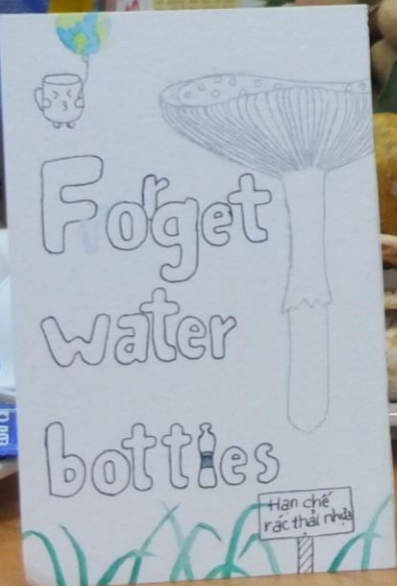 Forget
water
bottles
Hạn chế
rác thải nhựa